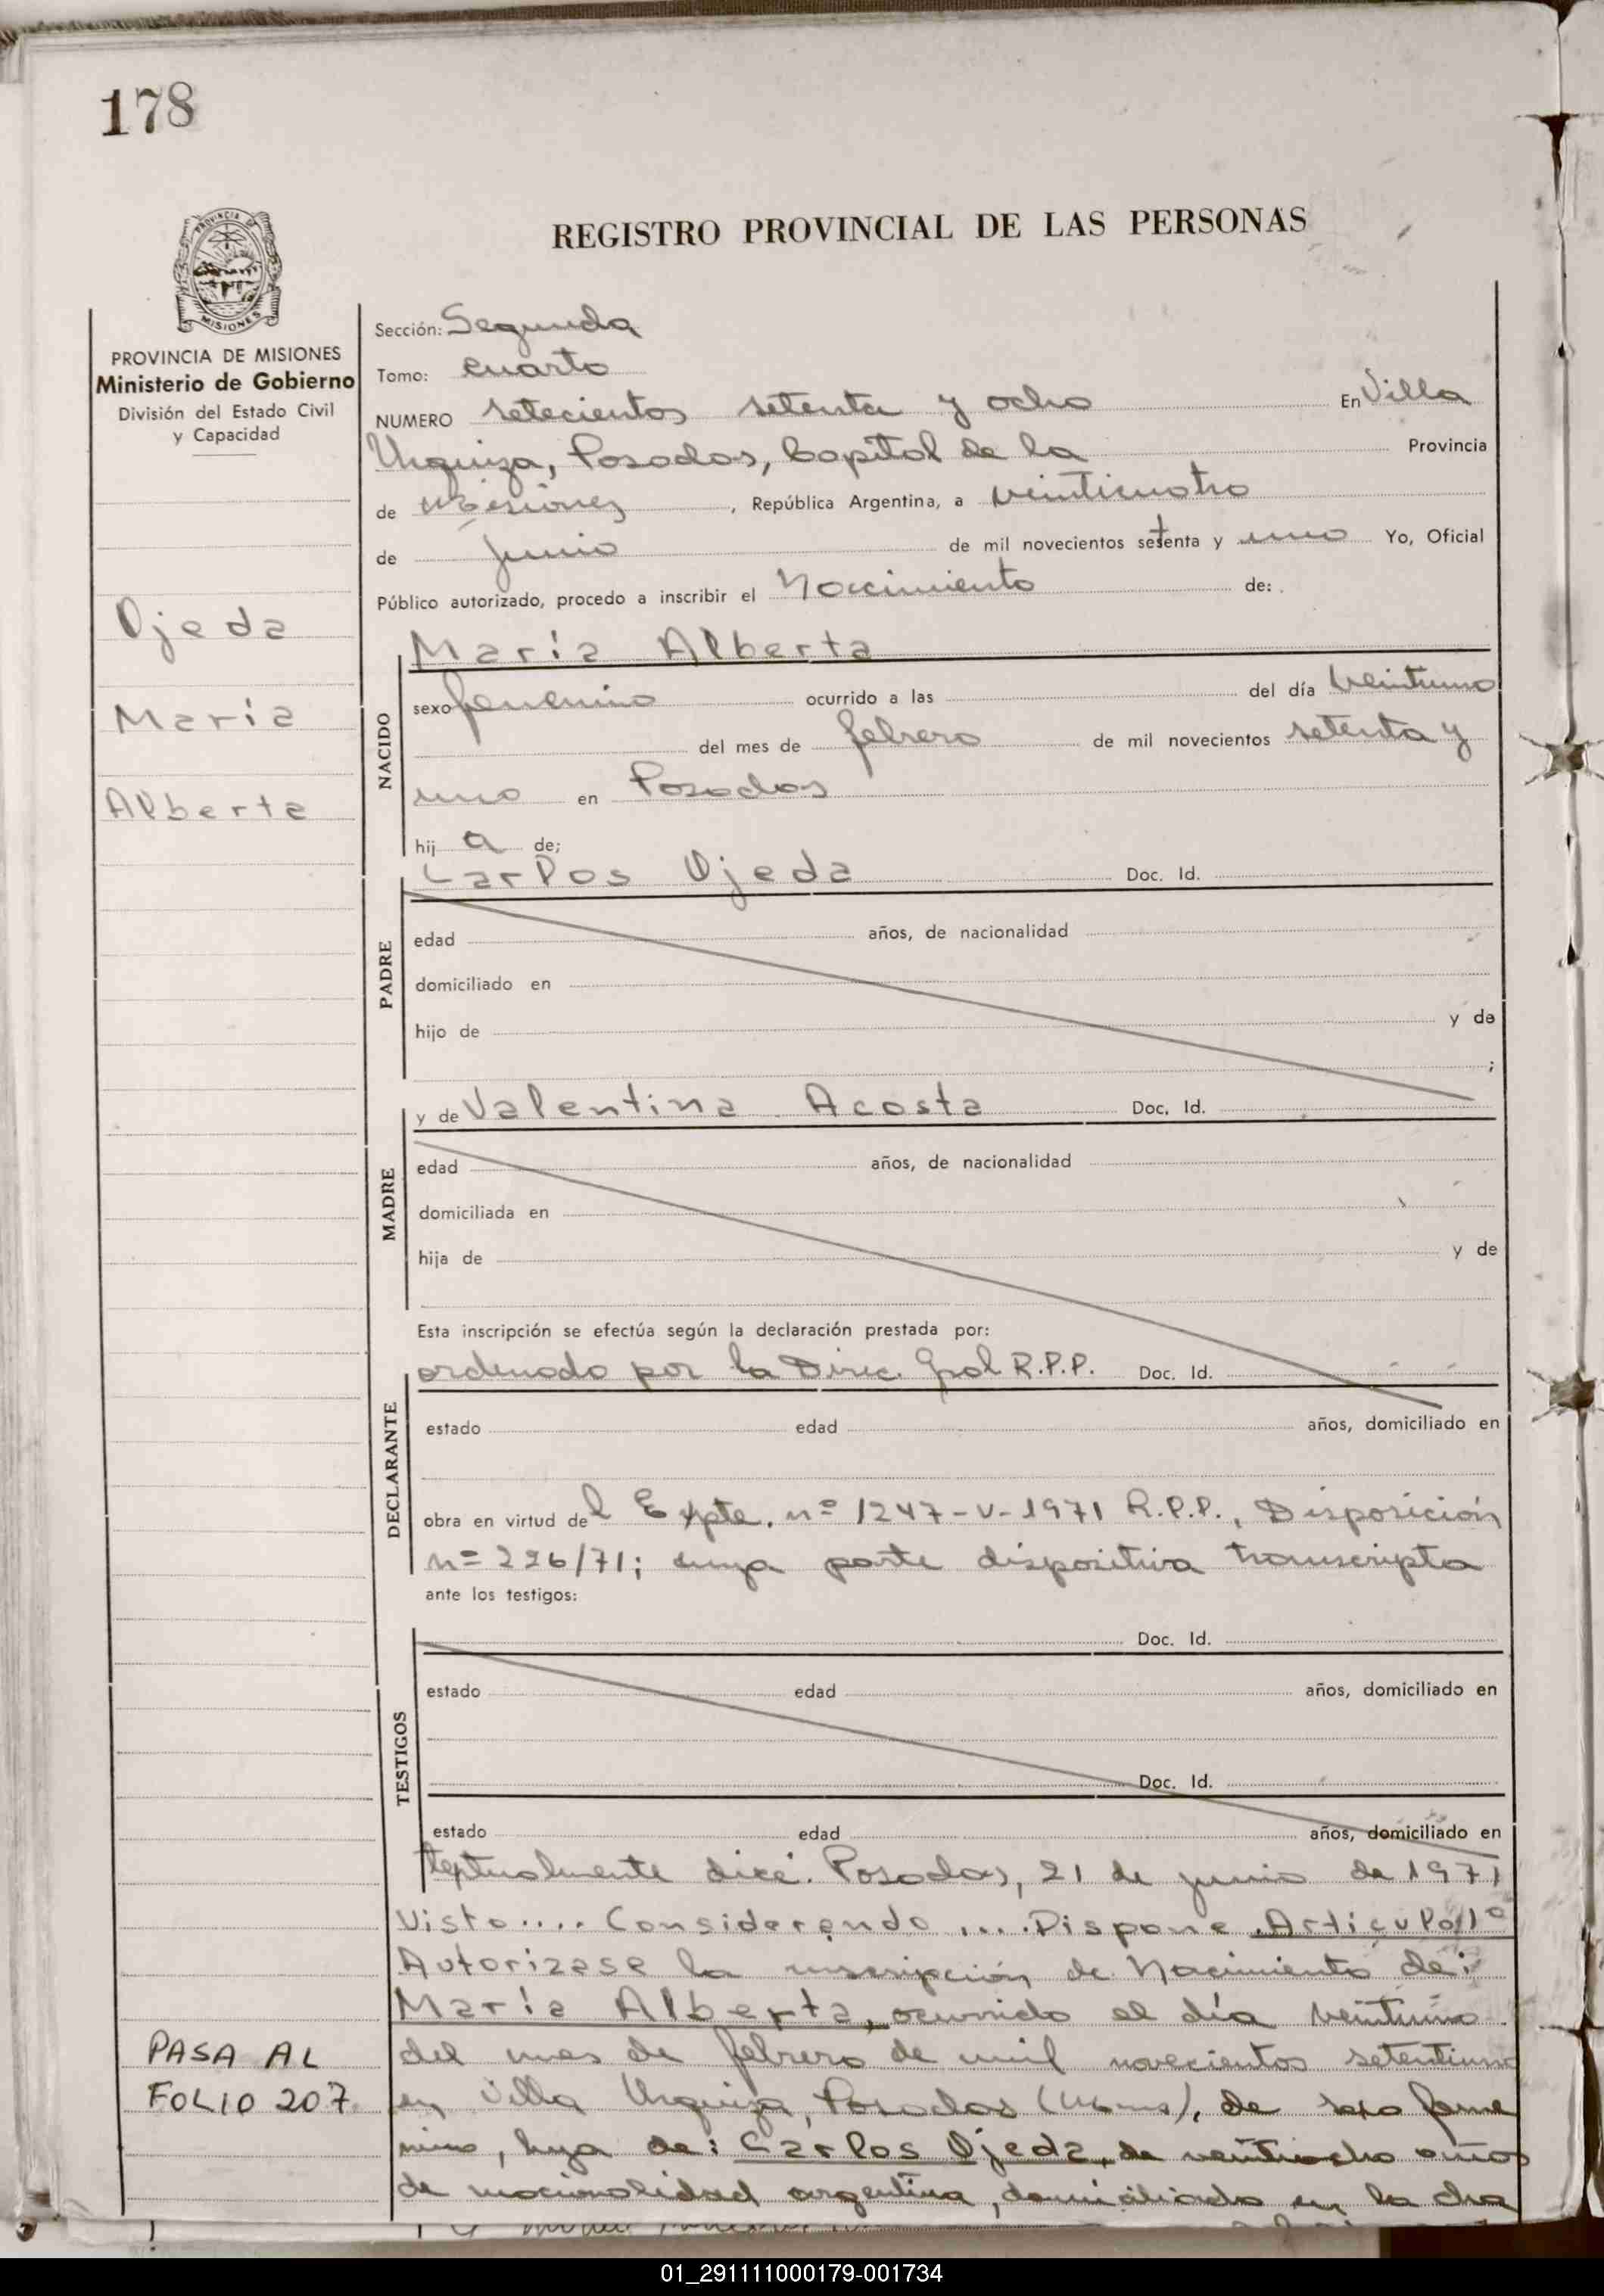 178
REGISTRO PROVINCIAL DE LAS PERSONAS
PROVINCIA DE MISIONES
PROVINCIA DE MISIONES
Ministerio de Gobierno
División del Estado Civil
y Capacidad
Ojeda
María
Alberta
PASA AL
FOLIO 207
Sección: Segunda
Tomo: cuarto
NUMERO setecientos setenta y ocho En Villa
Urquiza, Posadas, Capital de la Provincia
de Misiones, República Argentina, a veinticuatro
de junio de mil novecientos setenta y uno Yo, Oficial
Público autorizado, procedo a inscribir el Nacimiento de:
NACIDO
María Alberta
sexo femenino ocurrido a las del día veintiuno
del mes de febrero de mil novecientos setenta y
uno en Posadas
hij a de;
PADRE
Carlos Ojeda Doc. Id.
edad años, de nacionalidad
domiciliado en
hijo de y de
;
MADRE
y de Valentina Acosta Doc. Id.
edad años, de nacionalidad
domiciliada en
hija de y de
Esta inscripción se efectúa según la declaración prestada por:
DECLARANTE
ordenado por la Direc. Gral R.P.P. Doc. Id.
estado edad años, domiciliado en
obra en virtud del Expte. nº 1247-V-1971 R.P.P., Disposición
nº 226/71; cuya parte dispositiva transcripta
ante los testigos:
TESTIGOS
Doc. Id.
estado edad años, domiciliado en
Doc. Id.
estado edad años, domiciliado en
textualmente dice: Posadas, 21 de junio de 1971
Visto.... Considerando .... Dispone Artículo 1º
Autorizase la inscripción de Nacimiento de:
María Alberta, ocurrido el día veintiuno
del mes de febrero de mil novecientos setentiuno
en Villa Urquiza, Posadas (Mnes), de sexo feme
nino, hija de: Carlos Ojeda, de veintiocho años
de nacionalidad argentina, domiciliado en la cha
01_291111000179-001734